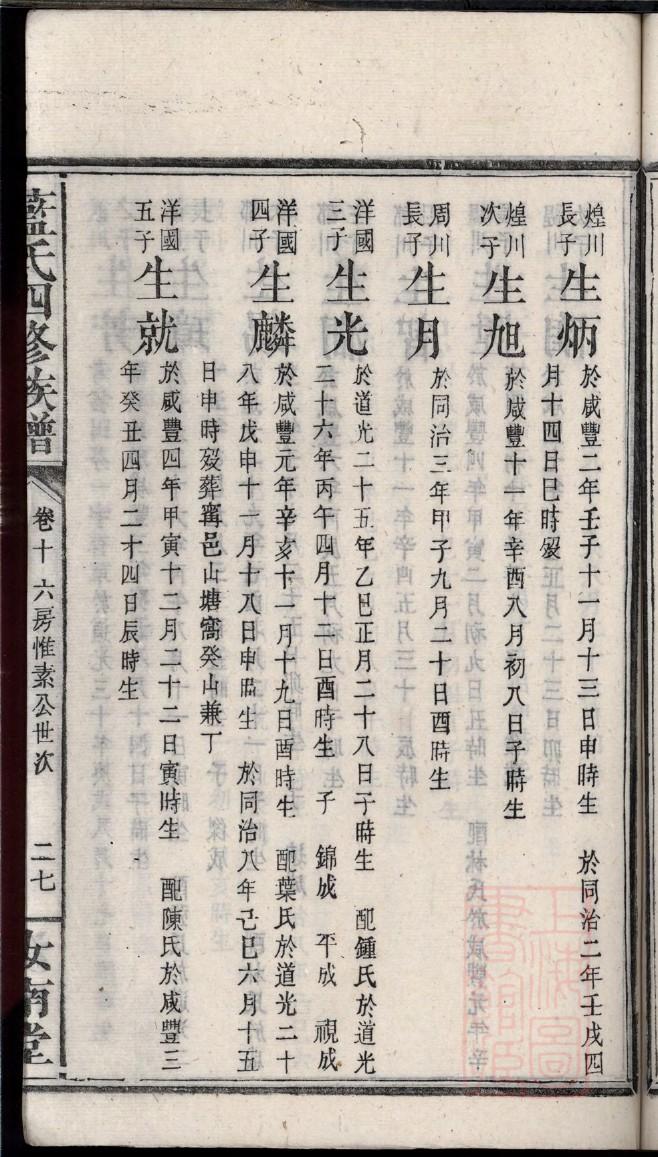 煌川長子 生炳 於咸豐二年壬子十一月十三日申時生 於同治二年壬戌四
月十四日巳時歿
煌川次子 生旭 於咸豐十一年辛酉八月初八日子時生
周川長子 生月 於同治三年甲子九月二十日酉時生
洋國三子 生光 於道光二十五年乙巳正月二十八日子時生 配鍾氏於道光
二十六年丙午四月十二日酉時生 子 錦成 平成 視成
洋國四子 生麟 於咸豐元年辛亥十一月十九日酉時生 配葉氏於道光二十
八年戊申十一月十八日申時生 於同治八年己巳六月十五
日申時歿葬甯邑山塘窩癸山兼丁
洋國五子 生就 於咸豐四年甲寅十二月二十二日寅時生 配陳氏於咸豐三
年癸丑四月二十四日辰時生
藍氏四修族譜 卷十 六房惟素公世次 二七 汝南堂
上海圖書館藏